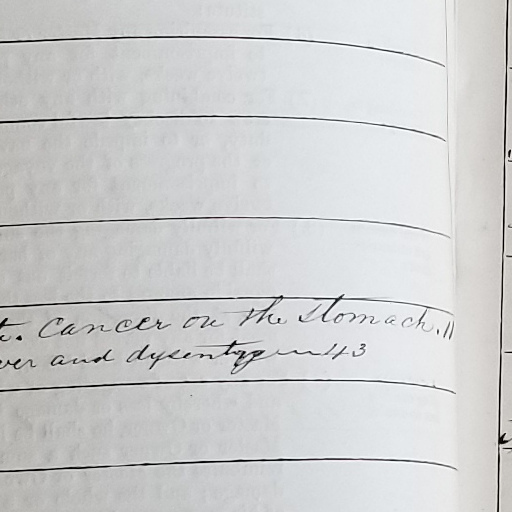 t. Cancer on the stomach. 11
ver and dysentery 43